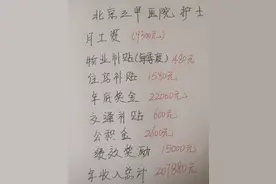 北京三甲医院护士
月工资（9300元）
物业补贴（每季度）480元
住房补贴 1580元
年底奖金 22000元
交通补贴 600元
公积金 2600元
绩效奖励 15000元
年收入总计 207880元